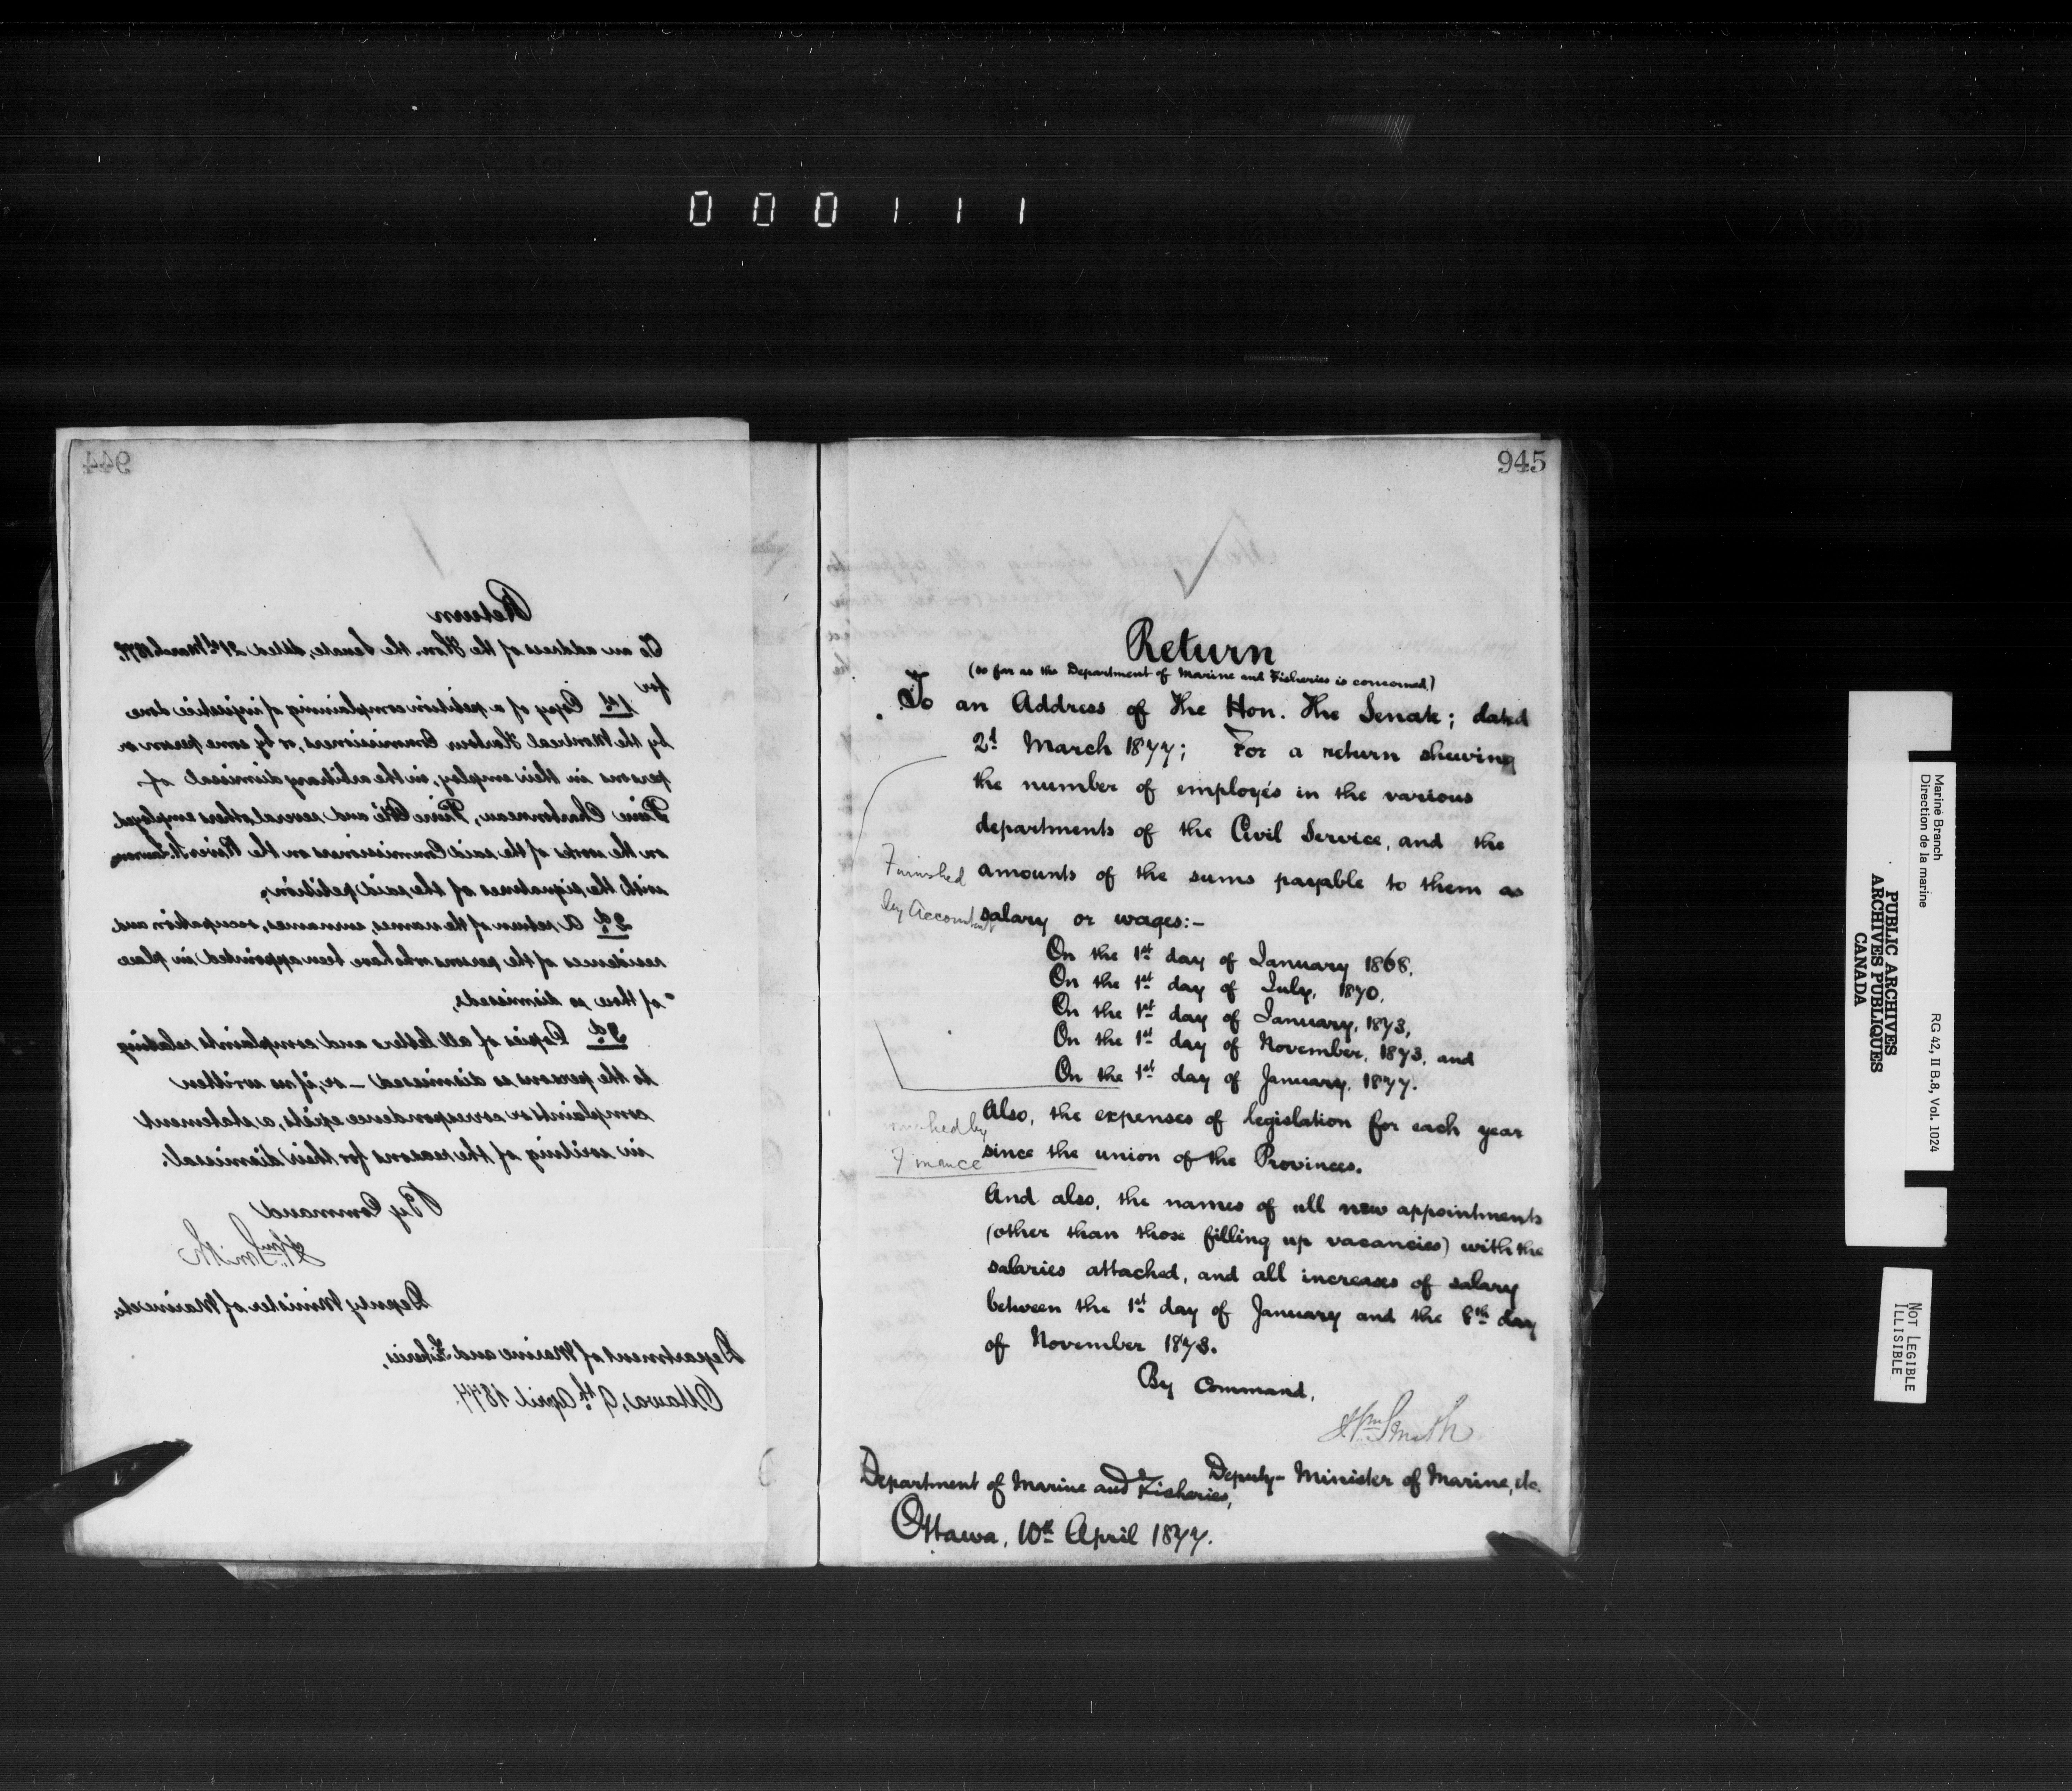 0 0 0 1 1 1
944
Return
To an address of the Hon. the Senate, dated 21st March 1877.
for
1st Copy of a petition complaining of injustice done
by the Montreal Harbour Commissioners, or by some person or
persons in their employ, in the arbitrary dismissal of
Pierre Charbonneau, Pierre Coté and several others employed
on the works of the said Commissioners on the River St. Lawrence
with the signatures of the said petition,
2d A return of the names, surnames, occupation and
residences of the persons who have been appointed in place
of those so dismissed,
3d Copies of all letters and complaints relating
to the persons so dismissed – or, if no written
complaints or correspondence exists, a statement
in writing of the reasons for their dismissal.
By Command
Wm Smith
Deputy Minister of Marine etc.
Department of Marine and Fisheries,
Ottawa, 9th April 1877.
945
Return
(so far as the Department of Marine and Fisheries is concerned.)
To an Address of The Hon. The Senate; dated
2d March 1877; For a return shewing
the number of employés in the various
departments of the Civil Service, and the
Furnished amounts of the sums payable to them as
by Accountant salary or wages:-
On the 1st day of January 1868,
On the 1st day of July, 1870,
On the 1st day of January, 1873,
On the 1st day of November, 1873, and
On the 1st day of January, 1877.
Also, the expenses of legislation for each year
by
Finance since the union of the Provinces.
And also, the names of all new appointments
(other than those filling up vacancies) with the
salaries attached, and all increases of salary
between the 1st day of January and the 8th day
of November 1873.
By Command,
Wm Smith
Deputy-Minister of Marine, etc.
Department of Marine and Fisheries,
Ottawa, 10th April 1877.
Marine Branch
Direction de la marine
RG 42, II B.8, Vol. 1024
PUBLIC ARCHIVES
ARCHIVES PUBLIQUES
CANADA
NOT LEGIBLE
ILLISIBLE